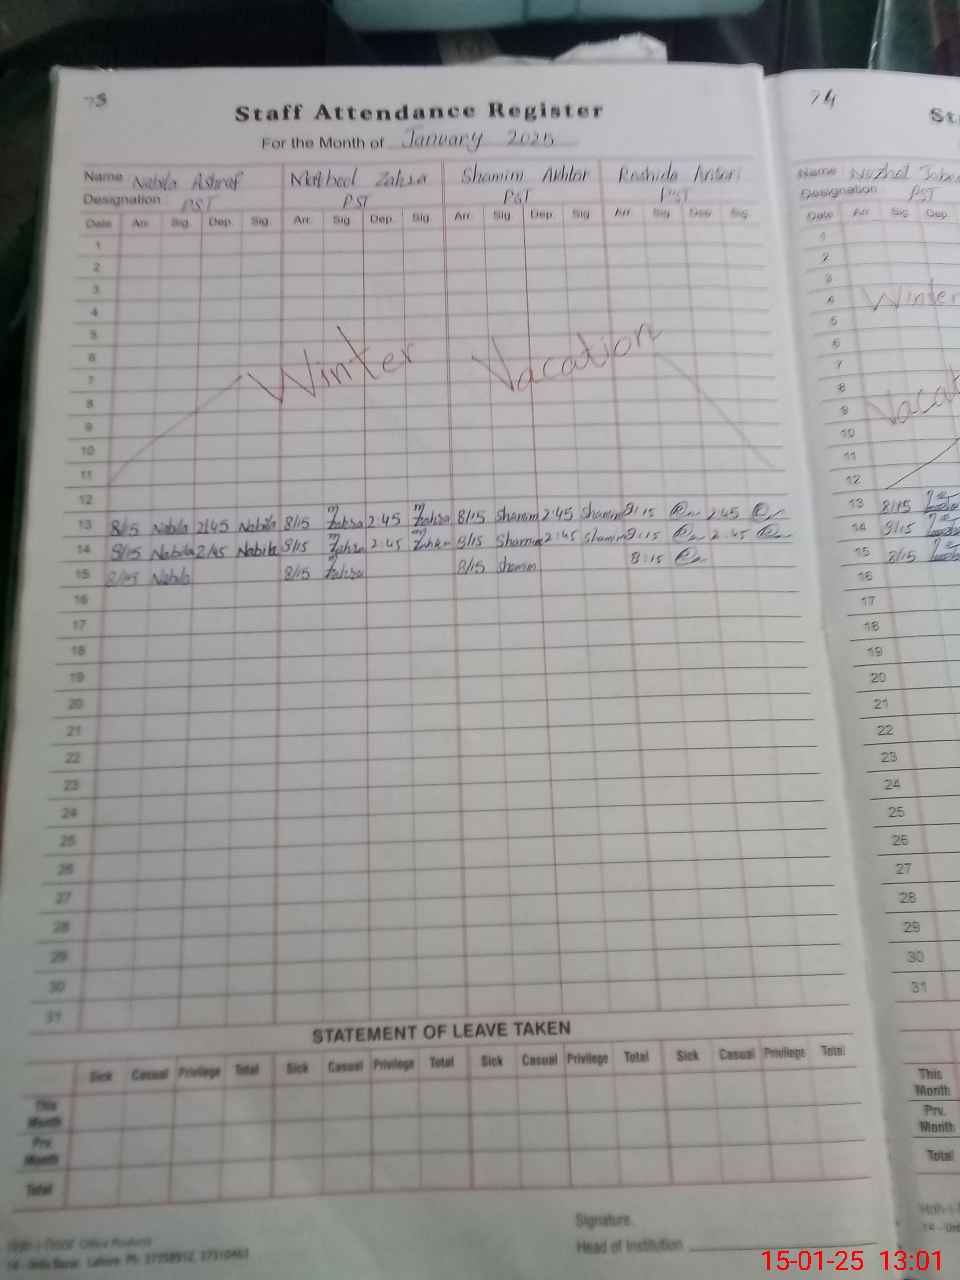 Staff Attendance Register
For the Month of January 2025
Name Nabila Ashraf Zahra Shamim Akhtar Rashida
Designation PST PST PST PST
Date Arr. Sig. Dep. Sig. Arr. Sig. Dep. Sig. Arr. Sig. Dep. Sig. Arr. Sig. Dep. Sig.
1
2
3
4
5
6
7
Winter Vacation
8
9
10
11
12
13 8/15 Nabila 2/45 Nabila 8/15 Zahra 2:45 Zahra 8/15 Shamim 2:45 Shamim 8:15 2:45
14 8/15 Nabila 2/45 Nabila 8/15 Zahra 2:45 Zahra 8/15 Shamim 2:45 Shamim 8:15 2:45
15 8/15 Nabila 8/15 Zahra 8/15 Shamim 8:15
16
17
18
19
20
21
22
23
24
25
26
27
28
29
30
31
STATEMENT OF LEAVE TAKEN
Sick Casual Privilege Total Sick Casual Privilege Total Sick Casual Privilege Total Sick Casual Privilege Total
This Month
Prv. Month
Total
Signature.
Head of Institution
74
Name
Designation PST
Date Arr. Sig. Dep.
1
2
3
4
Winter
5
6
7
8
9
10
11
12
13 8/15
14 8/15
15 8/15
16
17
18
19
20
21
22
23
24
25
26
27
28
29
30
31
This Month
Prv. Month
Total
15-01-25 13:01